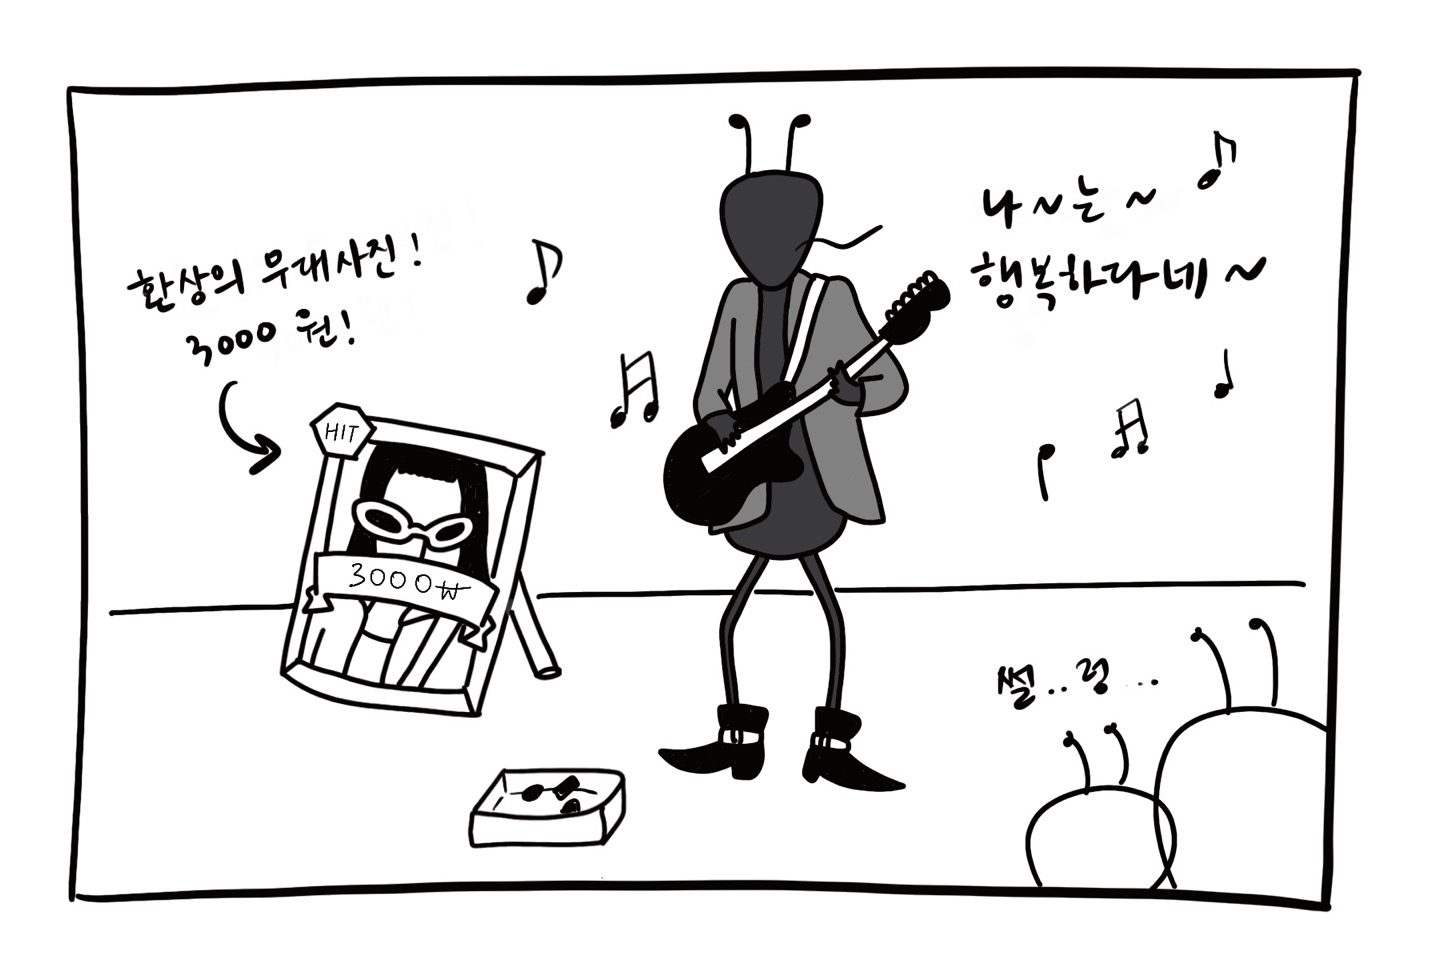 환상의 무대사진!
3000 원!
HIT
3000₩
나~는~
행복하다네~
썰..렁...